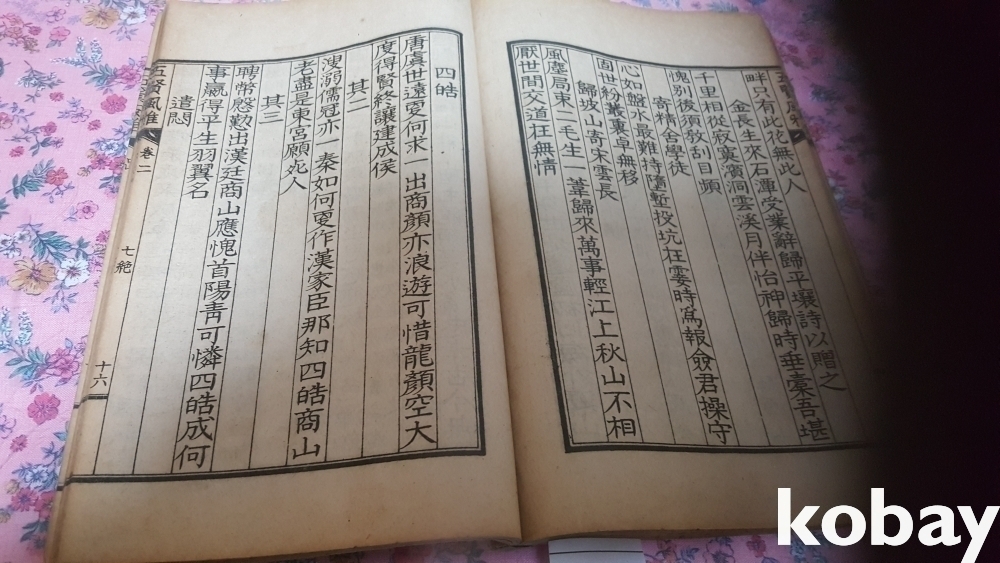 畔只有此花無此人
金長生來石潭受業辭歸平壤詩以贈之
千里相從寂寞濱洞雲溪月伴怡神歸時垂橐吾堪
愧別後須敎刮目頻
寄精舍學徒
心如盤水最難持墮塹投坑在霎時爲報僉君操守
固世紛叢裏卓無移
歸坡山寄宋雲長
風塵局束二毛生 葦歸來萬事輕江上秋山不相
厭世間交道在無情
四皓
唐虞世遠更何求一出商顔亦浪遊可惜龍顔空大
度得賢終讓建成侯
其二
溲溺儒冠亦一秦如何更作漢家臣那知四皓商山
老盡是東宮願死人
其三
聘幣慇懃出漢廷商山應愧首陽靑可憐四皓成何
事贏得平生羽翼名
遣悶
五賢風雅 卷二 七絶 十六
kobay